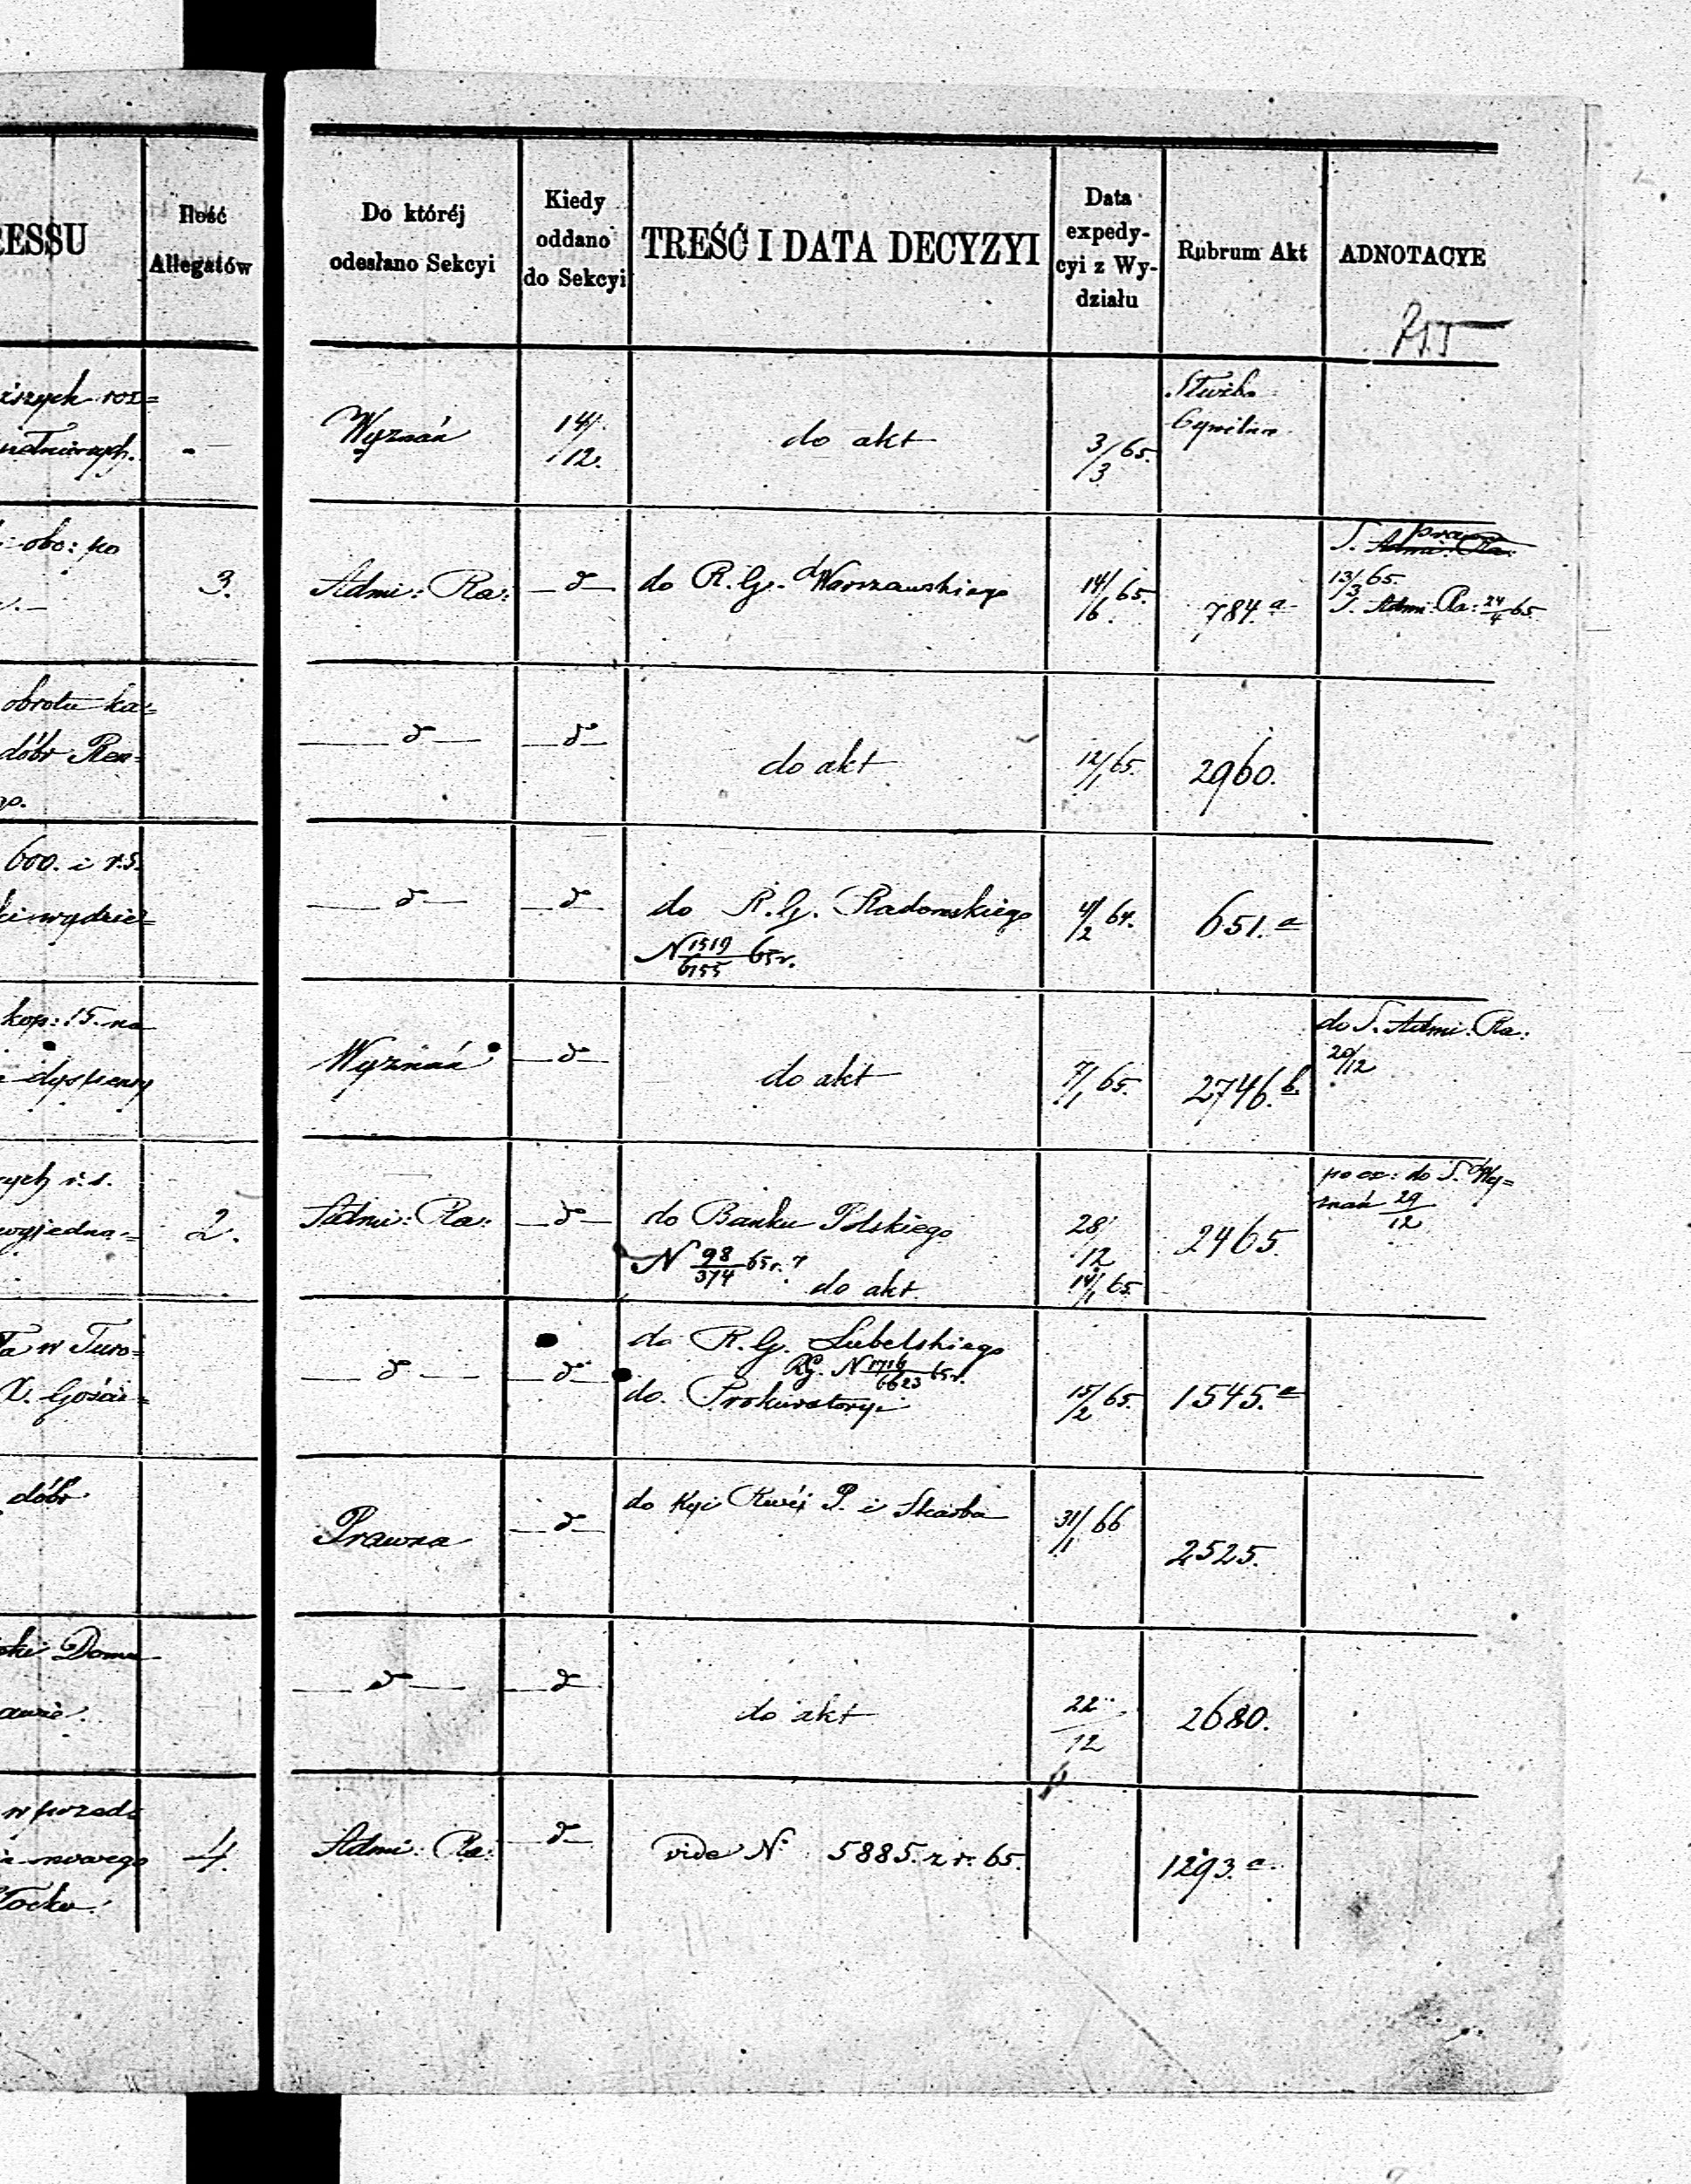 RESSU
Ilość
Allegatów
Do któréj
odesłano Sekcyi
Kiedy
oddano
do Sekcyi
TREŚĆ I DATA DECYZYI
Data
expedy-
cyi z Wy-
działu
Rubrum Akt
ADNOTACYE
Wyznań
14/12.
do akt
3/3 65.
Służba
Cywilna
: obo: po
3.
Admi: Ra:
— d —
do R. G. Warszawskiego
14/6 65.
784.a
S. Admi: Ra:
13/3 65.
S. Admi: Ra: 24/4 65
obrotu ka=
dóbr
go.
— d —
— d —
do akt
12/1 65.
2960.
600. i r.s.
— d —
— d —
do R. G. Radomskiego
N 1519/6155 65 r.
4/2 64.
651.a
kop: 15. na
dyspensy
Wyznań
— d —
do akt
7/1 65.
2746.b.
do S. Admi: Ra:
20/12
r. s.
wyjedna=
2.
Admi: Ra:
— d —
do Banku Polskiego
N 98/374 65 r.
do akt
28/12
14/1 65.
2465.
do S. Wy=
znań 29/12
w Turo=
X. Gości=
— d —
— d —
do R. G. Lubelskiego
RG. N 1716/6623 65 r.
do Prokuratoryi
15/2 65.
1545.a
dóbr
Prawna
— d —
do Kyi Rwéj P. i Skarbu
31/1 66
2525.
Domu
— d —
— d —
do akt
22/12
2680.
nowego
4.
Admi: Ra:
— d —
vide N. 5885. z r. 65.
1293.a